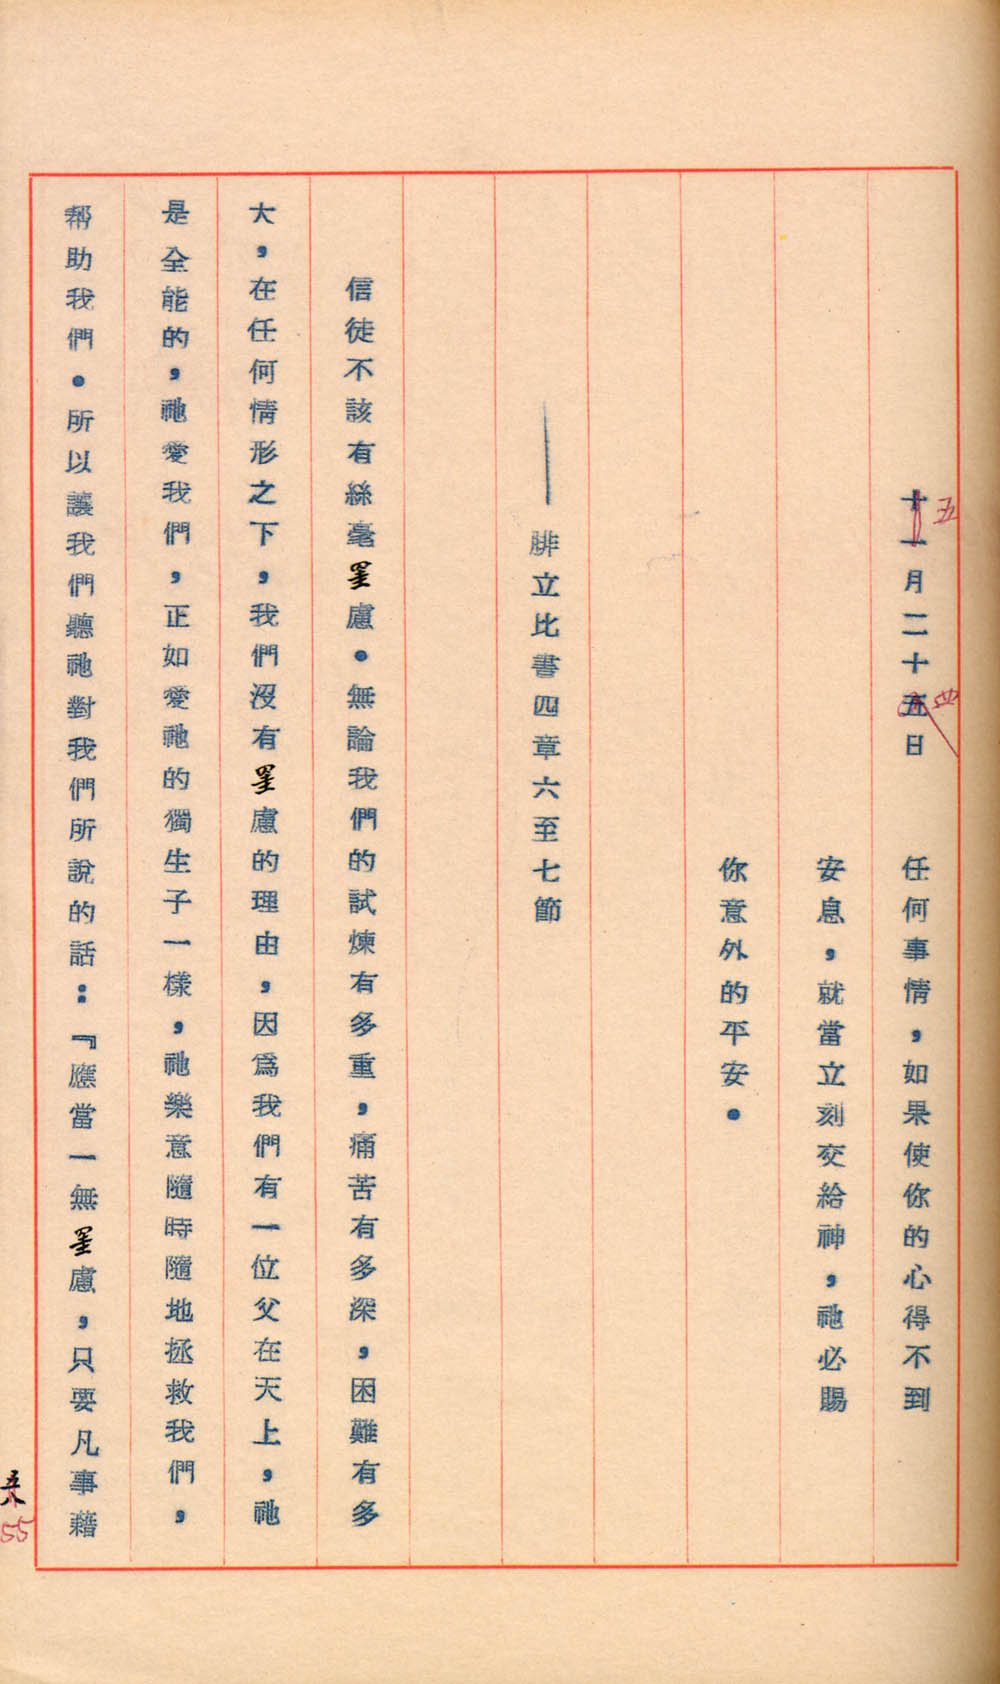 五
十一月二十五日　任何事情，如果使你的心得不到
四
安息，就當立刻交給神，祂必賜
你意外的平安。
——腓立比書四章六至七節
信徒不該有絲毫罣慮。無論我們的試煉有多重，痛苦有多深，困難有多
大，在任何情形之下，我們沒有罣慮的理由，因爲我們有一位父在天上，祂
是全能的，祂愛我們，正如愛祂的獨生子一樣，祂樂意隨時隨地拯救我們，
帮助我們。所以讓我們聽祂對我們所說的話：『應當一無罣慮，只要凡事藉
55